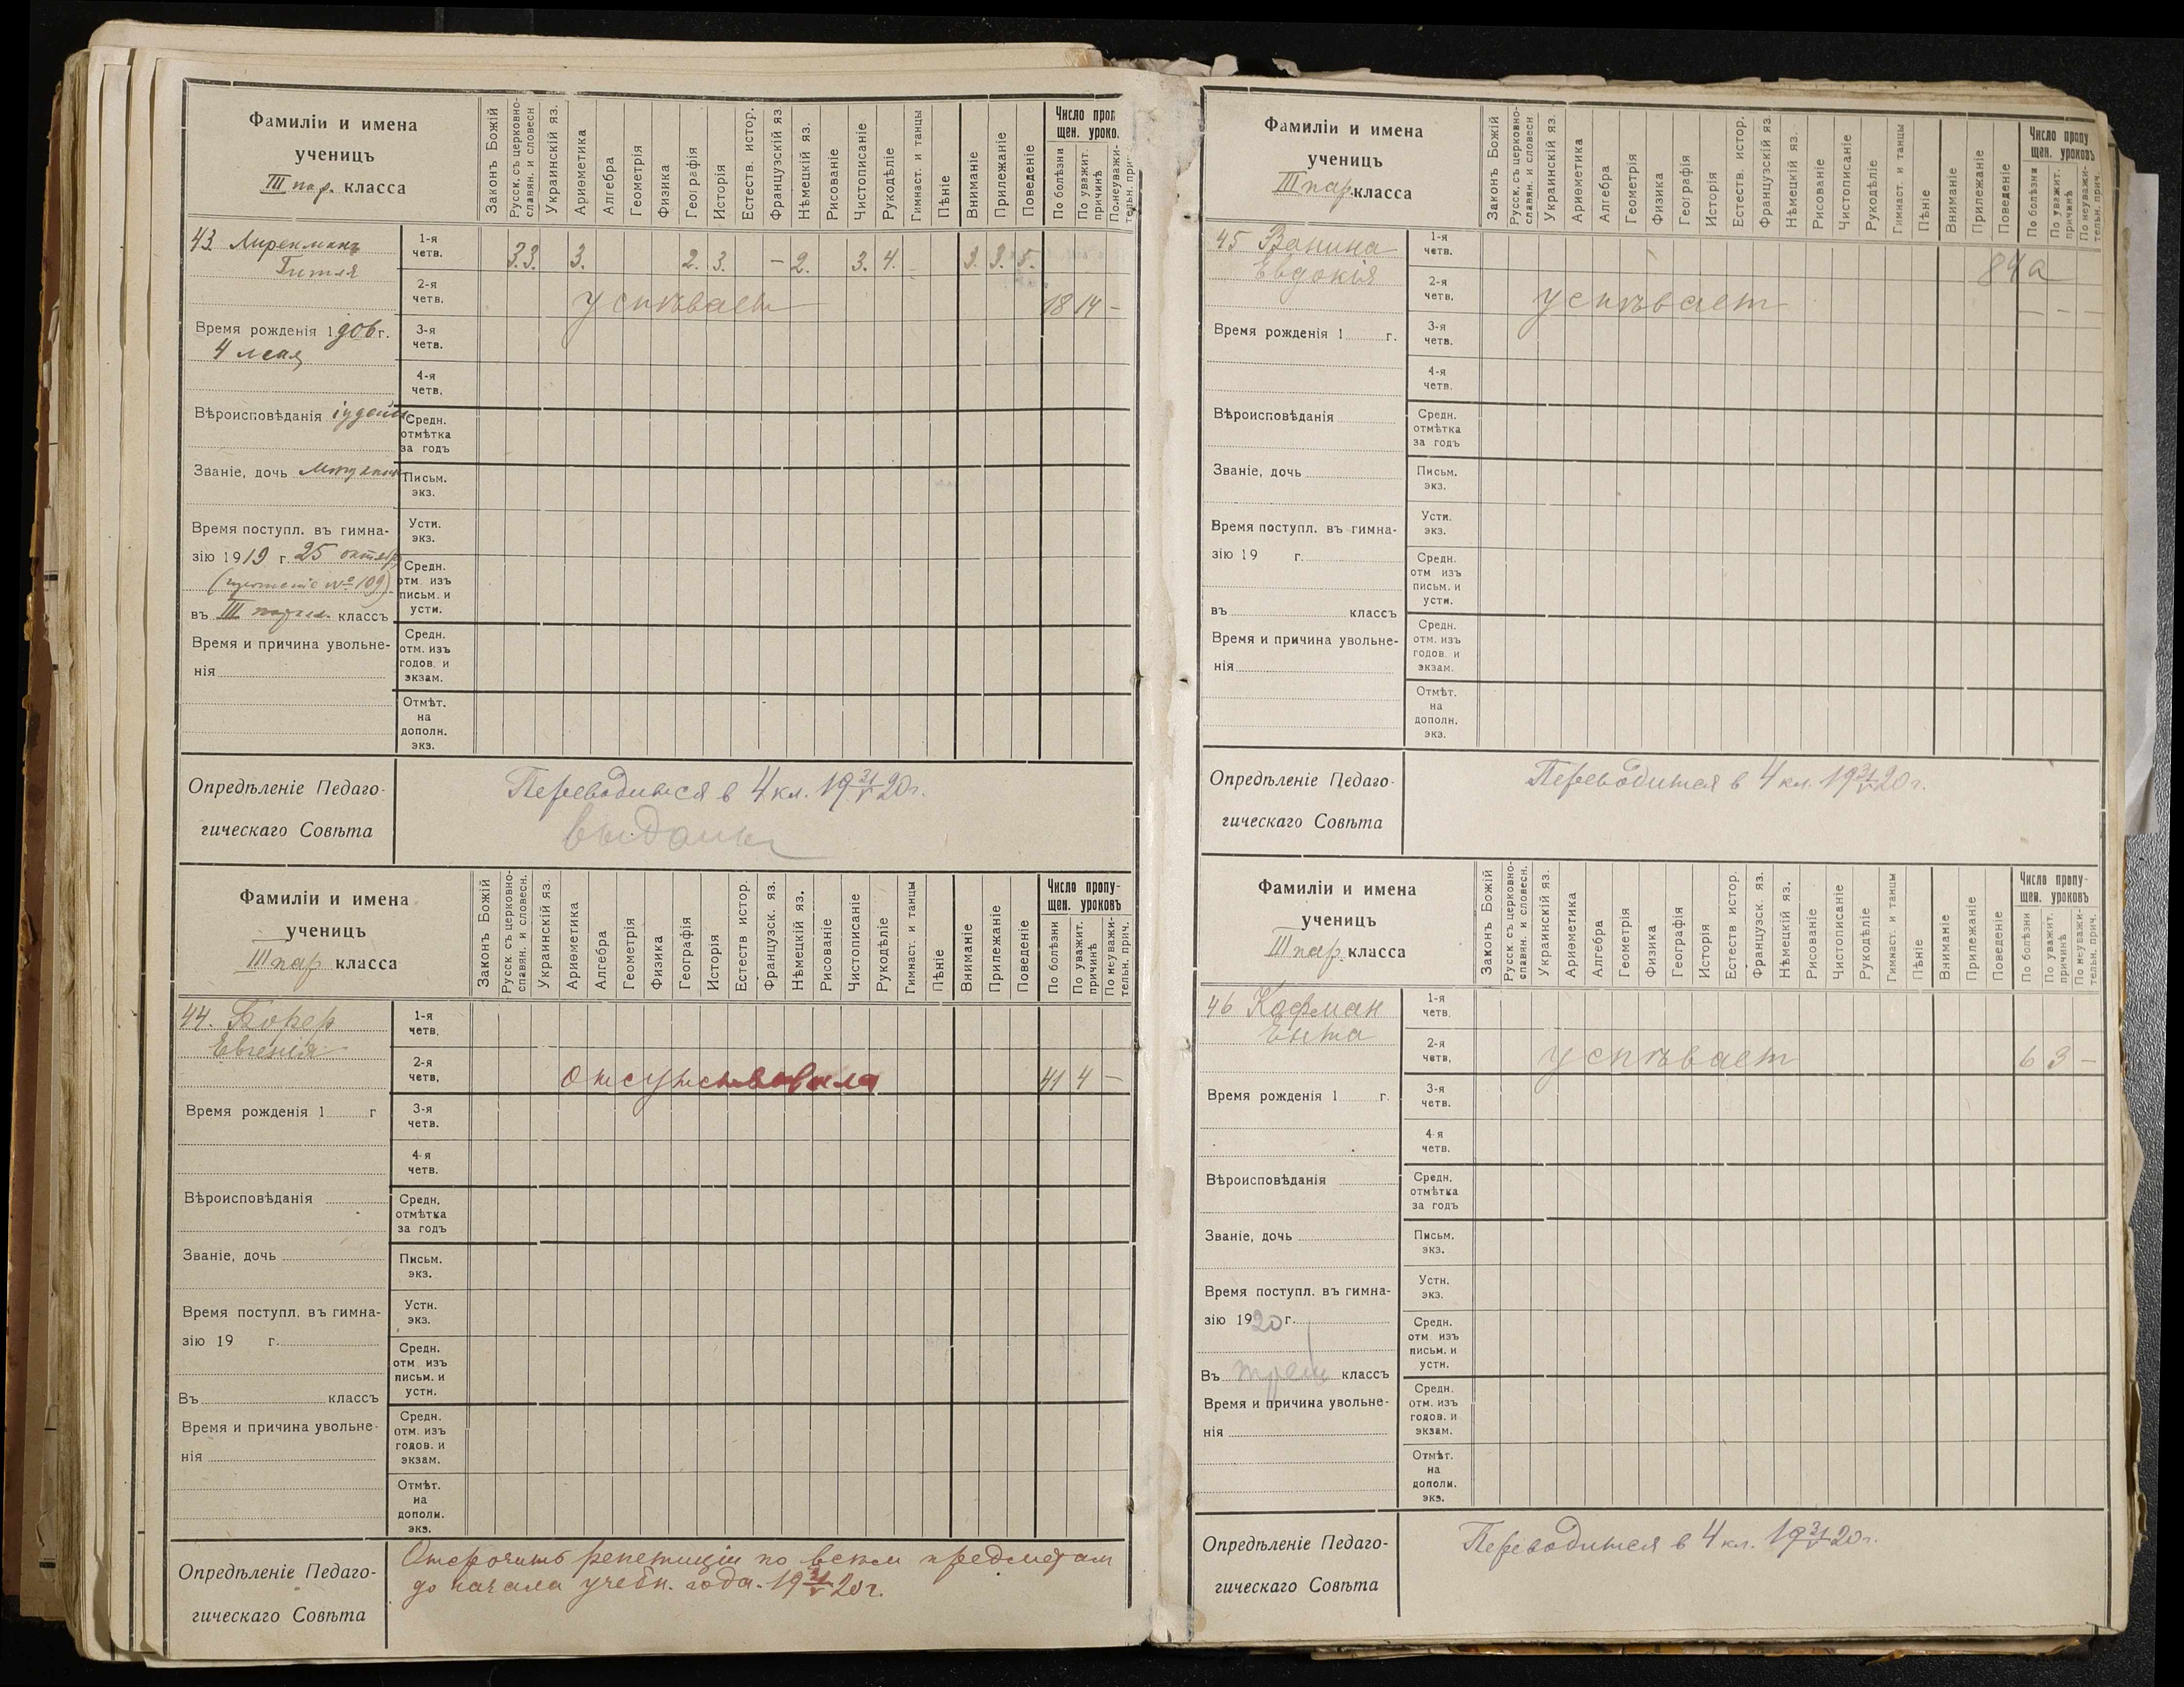 Фамиліи и имена
ученицъ
III пар. класса
Законъ Божій
Русск. съ церковно-
славян. и словесн
Украинскій яз.
Ариѳметика
Алгебра
Геометрія
Физика
Географія
Исторія
Естеств. истор.
Французскій яз
Нѣмецкій яз.
Рисованіе
Чистописаніе
Рукодѣліе
Гимнаст. и танцы
Пѣніе
Вниманіе
Прилежаніе
Поведеніе
Число проп
щен. уроко.
По болѣзни
По уважит.
причинѣ
По неуважи-
тельн. прич
43
Гитля
1-я
четв.
3. 3. 3. 2. 3. – 2. 3. 4. 3. 3. 5.
2-я
четв.
успѣвает 18 14 –
Время рожденія 1906 г.
4 мая
3-я
четв.
4-я
четв.
Вѣроисповѣданія іудейск
Средн.
отмѣтка
за годъ
Званіе, дочь
Письм.
экз.
Время поступл. въ гимна-
зію 1919 г. 25 октябр
(прошеніе № 109)
въ III парал. классъ
Устн.
экз.
Средн.
отм. изъ
письм. и
устн.
Время и причина увольне-
нія
Средн.
отм. изъ
годов. и
экзам.
Отмѣт.
на
дополн.
экз.
Опредѣленіе Педаго-
гическаго Совѣта
Переводится в 4 кл. 19 31/V 20 г.
Выданы
Фамиліи и имена
ученицъ
III пар класса
Законъ Божій
Русск. съ церковно-
славян. и словесн.
Украинскій яз.
Ариѳметика
Алгебра
Геометрія
Физика
Географія
Исторія
Естеств истор.
Французск. яз.
Нѣмецкій яз.
Рисованіе
Чистописаніе
Рукодѣліе
Гимнаст. и танцы
Пѣніе
Вниманіе
Прилежаніе
Поведеніе
Число пропу-
щен. уроковъ
По болѣзни
По уважит.
причинѣ
По неуважи-
тельн. прич.
44.
Евгенія
1-я
четв.
2-я
четв,
отсутствовала 41 4 –
Время рожденія 1 г
3-я
четв.
4-я
четв.
Вѣроисповѣданія
Средн,
отмѣтка
за годъ
Званіе, дочь
Письм.
экз.
Время поступл. въ гимна-
зію 19 г.
Въ классъ
Устн.
экз.
Средн.
отм изъ
письм. и
устн.
Время и причина увольне-
нія
Средн.
отм. изъ
годов. и
экзам.
Отмѣт.
на
дополн.
экз.
Опредѣленіе Педаго-
гическаго Совѣта
Отсрочить репетиціи по всем предметам
до начала учебн. года. 19 31/V 20 г.
Фамиліи и имена
ученицъ
III пар. класса
Законъ Божій
Русск. съ церковно-
славян. и словесн
Украинскій яз.
Ариѳметика
Алгебра
Геометрія
Физика
Географія
Исторія
Естеств. истор.
Французскій яз.
Нѣмецкій яз.
Рисованіе
Чистописаніе
Рукодѣліе
Гимнаст. и танцы
Пѣніе
Вниманіе
Прилежаніе
Поведеніе
Число пропу
щен. уроковъ
По болѣзни
По уважит.
причинѣ
По неуважи-
тельн. прич.
45 Ванина
Евдокія
1-я
четв.
2-я
четв.
успѣвает – – –
Время рожденія 1 г.
3-я
четв.
4-я
четв.
Вѣроисповѣданія
Средн.
отмѣтка
за годъ
Званіе, дочь
Письм.
экз.
Время поступл. въ гимна-
зію 19 г.
въ классъ
Устн.
экз.
Средн.
отм изъ
письм. и
устн.
Время и причина увольне-
нія
Средн.
отм. изъ
годов. и
экзам.
Отмѣт.
на
дополн.
экз.
Опредѣленіе Педаго-
гическаго Совѣта
Переводится в 4 кл. 19 31/V 20 г.
Фамиліи и имена
ученицъ
III пар. класса
Законъ Божій
Русск. съ церковно-
славян. и словесн.
Украинскій яз.
Ариѳметика
Алгебра
Геометрія
Физика
Географія
Исторія
Естеств истор.
Француск. яз.
Нѣмецкій яз.
Рисованіе
Чистописаніе
Рукодѣліе
Гимнаст. и танцы
Пѣніе
Вниманіе
Прилежаніе
Поведеніе
Число пропу-
щен. уроковъ
По болѣзни
По уважит.
причинѣ
По неуважи-
тельн. прич.
46 Кофман
Ента
1-я
четв.
2-я
четв,
успѣвает 6 3 –
Время рожденія 1 г.
3-я
четв.
4-я
четв.
Вѣроисповѣданія
Средн.
отмѣтка
за годъ
Званіе, дочь
Письм.
экз.
Время поступл. въ гимна-
зію 1920 г.
Въ трет классъ
Устн.
экз.
Средн.
отм изъ
письм. и
устн.
Время и причина увольне-
нія
Средн.
отм. изъ
годов. и
экзам.
Отмѣт.
на
дополн.
экз.
Опредѣленіе Педаго-
гическаго Совѣта
Переводится в 4 кл. 19 31/V 20 г.